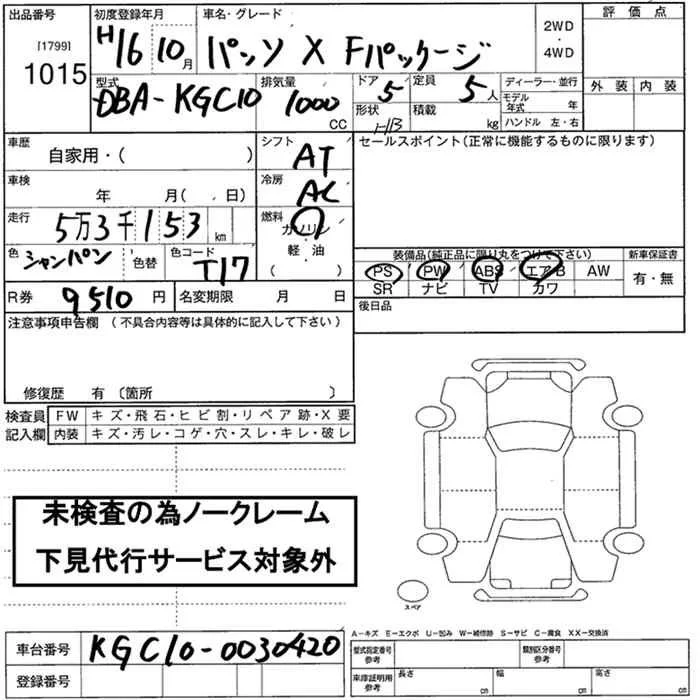 出品番号
[1799]
1015
初度登録年月
H16 10月
車名・グレード
パッソ X Fパッケージ
2WD
・
4WD
評価点
外装 内装
型式
DBA-KGC10
排気量
1000
CC
ドア
5
形状
H/B
定員
5人
積載
kg
ディーラー・並行
モデル年式 年
ハンドル 左・右
車歴
自家用・( )
シフト
AT
セールスポイント(正常に機能するものに限ります)
車検
年 月( 日)
冷房
AC
走行
5万3千153km
燃料
ガソリン
軽・油
( )
色
シャンパン
色替
色コード
T17
装備品(純正品に限り丸をつけて下さい)
PS PW ABS エアB AW
SR ナビ TV カワ
新車保証書
有・無
R券 9510円
名変期限 月 日
後日品
注意事項申告欄 (不具合内容等は具体的に記入して下さい)
修復歴 有 〔箇所 〕
検査員記入欄
FW キズ・飛石・ヒビ割・リペア跡・X要
内装 キズ・汚レ・コゲ・穴・スレ・キレ・破レ
未検査の為ノークレーム
下見代行サービス対象外
スペア
車台番号 KGC10-0030420
登録番号
A-キズ E-エクボ U-凹み W-補修跡 S-サビ C-腐食 XX-交換済
型式指定番号
参考
類別区分番号
参考
車庫証明用
参考
長さ cm
幅 cm
高さ cm